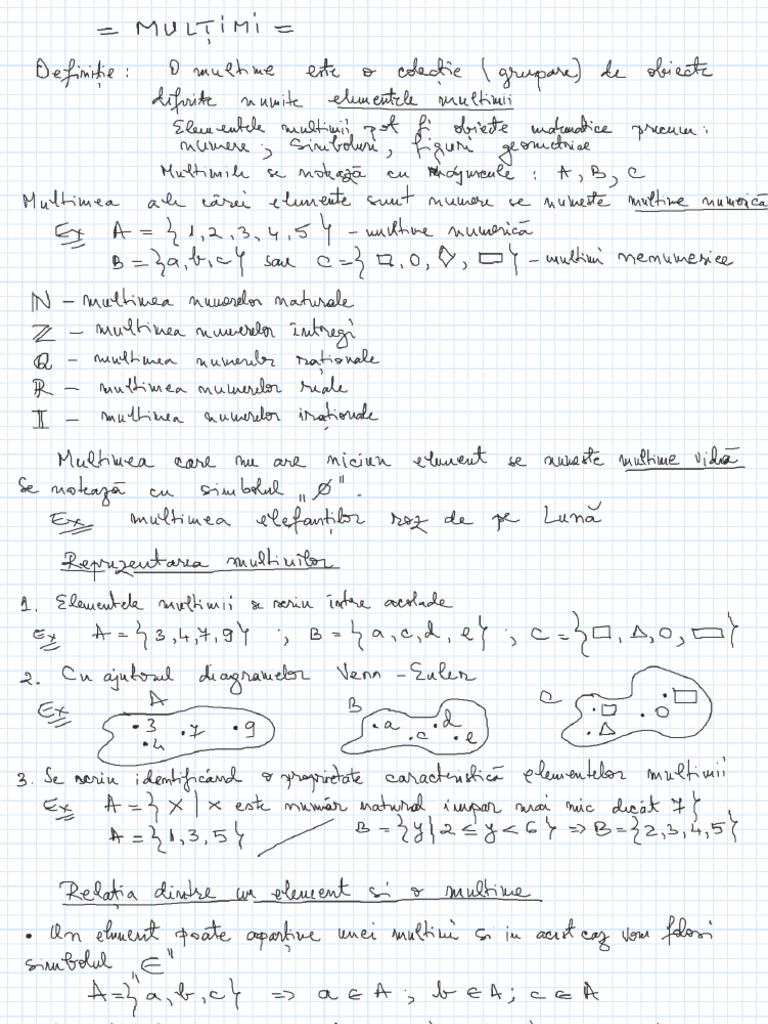 = MULȚIMI =
Definiție: O multime este o colectie (grupare) de obiecte
diferite numite elementele multimii
Elementele multimii pot fi obiecte matematice precum:
numere; simboluri, figuri geometrice
Multimile se notează cu majuscule: A, B, C
Multimea ale cărei elemente sunt numere se numeste multime numerică
Ex A = {1, 2, 3, 4, 5} - multime numerică
B = {a, b, c} sau C = {□, O, ◇, ▭} - multimi nenumerice
ℕ - multimea numerelor naturale
ℤ - multimea numerelor întregi
ℚ - multimea numerelor raționale
ℝ - multimea numerelor reale
𝕀 - multimea numerelor iraționale
Multimea care nu are niciun element se numeste multime vidă
Se notează cu simbolul „Ø".
Ex multimea elefanților roz de pe Lună
Reprezentarea multimilor
1. Elementele multimii se scriu între acolade
Ex A = {3, 4, 7, 9} ; B = {a, c, d, e} ; C = {□, △, O, ▭}
2. Cu ajutorul diagramelor Venn - Euler
Ex A B C
.3 .4 .7 .9 .a .c .d .e .□ .△ .O .▭
3. Se scriu identificând o proprietate caracteristică elementelor multimii
Ex A = {x | x este număr natural impar mai mic decât 7}
A = {1, 3, 5} B = {y | 2 ≤ y < 6} => B = {2, 3, 4, 5}
Relația dintre un element si o multime
• Un element poate aparține unei multimi si in acest caz vom folosi
simbolul „∈"
A = {a, b, c} => a ∈ A ; b ∈ A ; c ∈ A